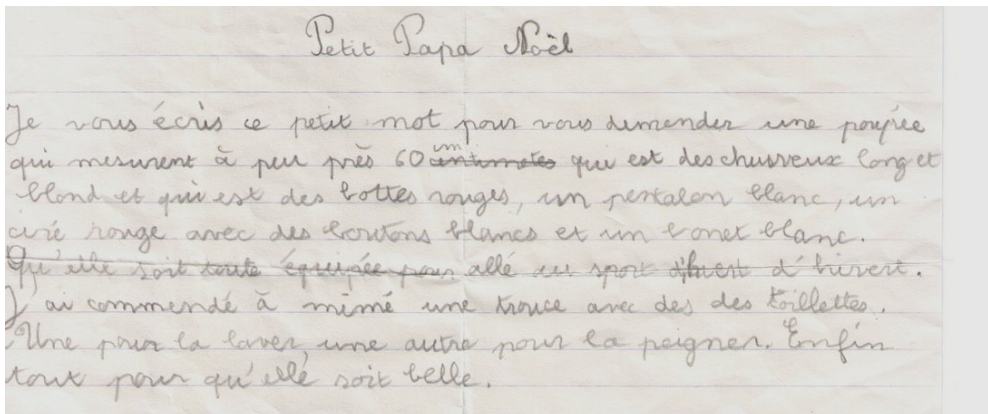 Petit Papa Noël
Je vous écris ce petit mot pour vous demender une poupée
qui mesurent à peu près 60 cm centimetes qui est des chuveux long et
blond et qui est des bottes rouges, un pentalon blanc, un
ciré rouge avec des boutons blancs et un bonet blanc.
Qu'elle soit toute équipée pour allé au sport d'hivert.
J'ai commendé à mimé une trouce avec des des toillettes.
Une pour la laver, une autre pour la peigner. Enfin
tout pour qu'elle soit belle.